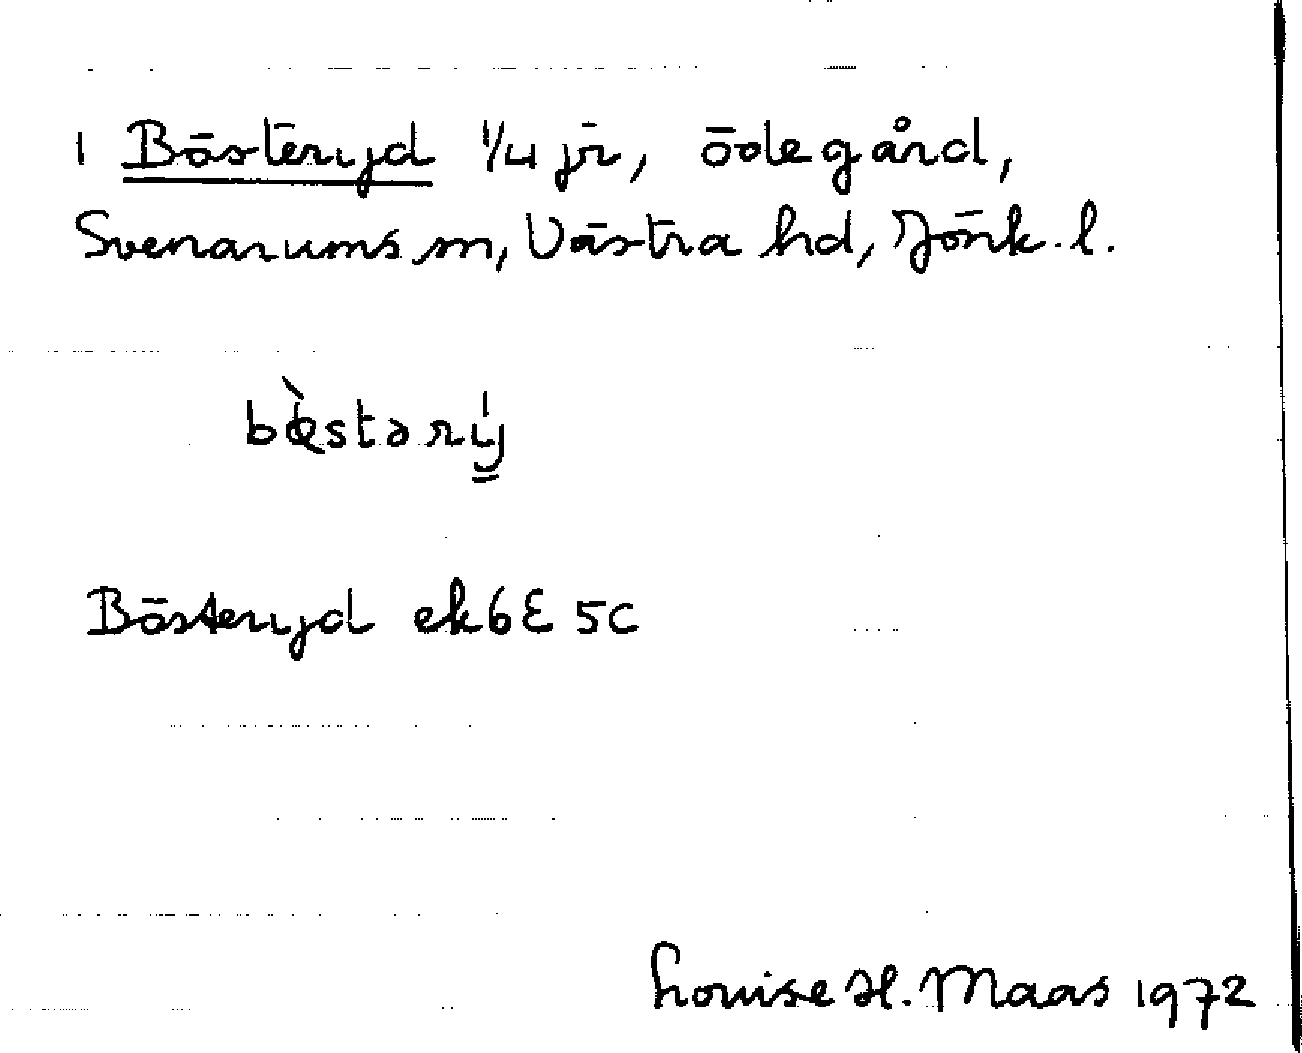 1 Bösteryd 1/4 jr, ödegård,
Svenarums sn, Västra hd, Jönk. l.
Bösteryd ek 6E 5c
Louise H. Maas 1972